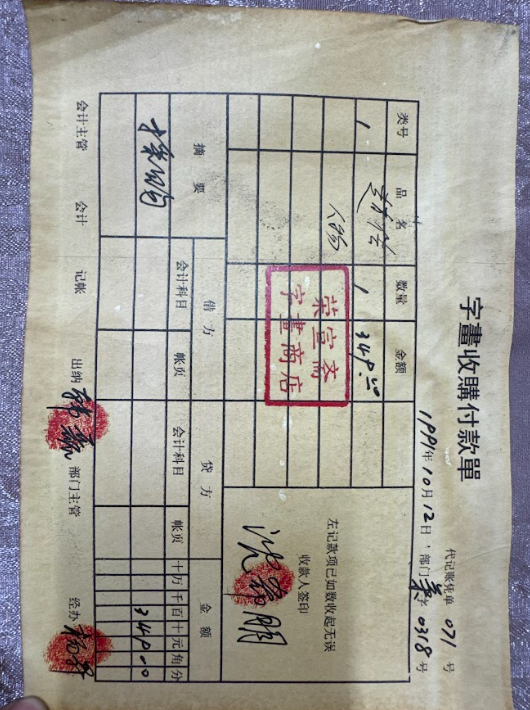 字畫收購付款單
代记账凭单 071 号
1991年10月12日·部门 字 0318 号
类号 品名 数量 金额
1 1 349.00
人物
荣宣斋
字畫商店
左记款项已如数收起无误
收款人签印
摘要 借方 贷方 金额
会计科目 帐页 会计科目 帐页 十万千百十元角分
349 00
会计主管 会计 记帐 出纳 部门主管 经办